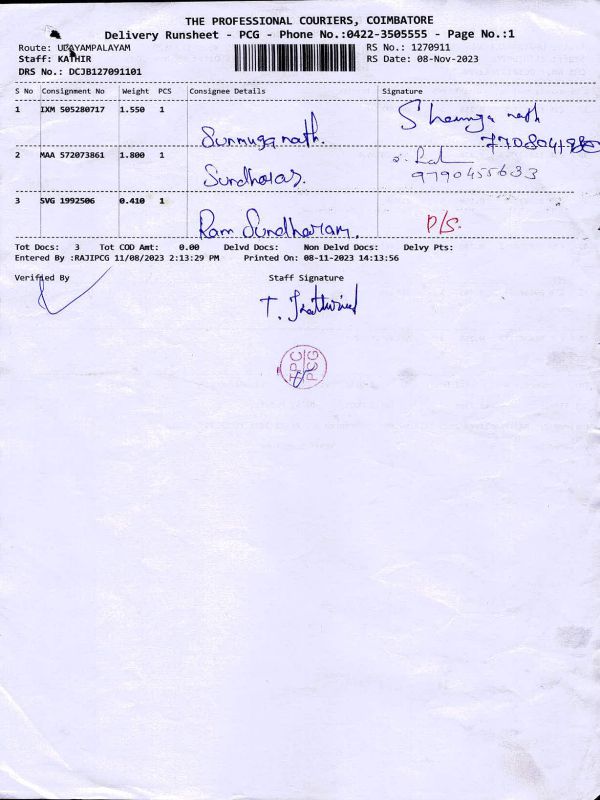 THE PROFESSIONAL COURIERS, COIMBATORE
Delivery Runsheet - PCG - Phone No.:0422-3505555 - Page No.:1
Route: UDAYAMPALAYAM RS No.: 1270911
Staff: KATHIR RS Date: 08-Nov-2023
DRS No.: DCJB127091101
S No Consignment No Weight PCS Consignee Details Signature
1 IXM 505280717 1.550 1
Sunmuganath.
2 MAA 572073861 1.800 1
Sundharas. 9790455633
3 SVG 1992506 0.410 1
Ram Sundharam. P/S.
Tot Docs: 3 Tot COD Amt: 0.00 Delvd Docs: Non Delvd Docs: Delvy Pts:
Entered By :RAJIPCG 11/08/2023 2:13:29 PM Printed On: 08-11-2023 14:13:56
Verified By Staff Signature
TPC
PCG